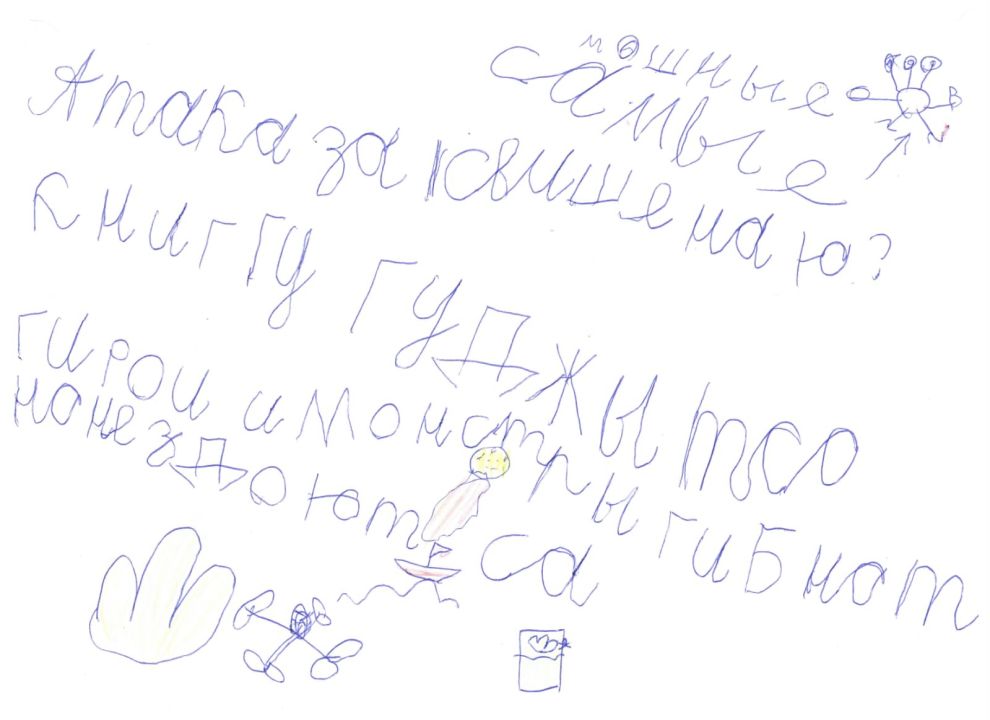 мошные
самые
Атака за квишенаю?
книггу гуджы тсо
гирои и монстры гибнат
нонездоют са